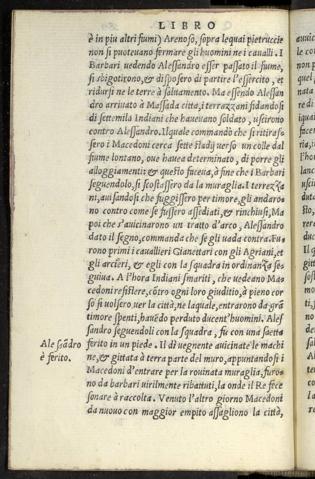 LIBRO
è in piu altri fiumi) Arenoso, sopra lequai pietruccie
non si puoteuano fermare gli huomini ne i caualli. I
Barbari uedendo Alessandro esser passato il fiume,
si sbigotirono, & disposero di partire l'essercito, et
ridursi ne le terre à saluamento. Ma essendo Alessan
dro arriuato à Massada città, i terrazzani fidandosi
di settemila Indiani che haueuano soldato, uscirono
contro Alessandro. Ilquale commādò che si ritiras=
sero i Macedoni cerca sette stadij uerso un colle dal
fiume lontano, oue hauea determinato, di porre gli
alloggiamenti: & questo faceua, à fine che i Barbari
seguendolo, si scostassero da la muraglia. I terrezza
ni, auisandosi che fuggissero per timore, gli andaro=
no contro come se fussero assediati, & rinchiusi, Ma
poi che s'auicinarono un tratto d'arco, Alessandro
dato il segno, commanda che se gli uada contra. Fu=
rono primi i cauallieri Gianettari con gli Agriani, et
gli arcieri, & egli con la squadra in ordinanza se=
guiua. A l'hora Indiani smariti, che uedeano Ma=
cedoni resistere, cōtro ogni loro giuditio, à pieno cor
so si uolsero uer la città, ne laquale, entrarono da grā
timore spenti, hauēdo perduto ducent'huomini. Ales
sandro seguendoli con la squadra, fu con una saetta
Ale sādro ferito in un piede. Il dì uegnente auicinate le machi
è ferito. ne, & gittata à terra parte del muro, appuntandosi i
Macedoni d'entrare per la rouinata muraglia, furo=
no da barbari uirilmente ributtati, la onde il Re fece
sonare à raccolta. Venuto l'altro giorno Macedoni
da nuouo con maggior empito assagliono la città,